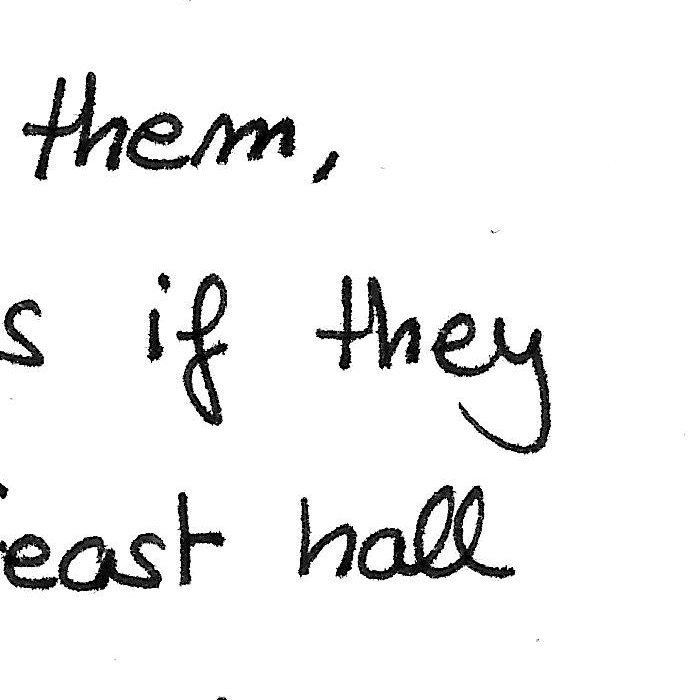 them,
s if they
east hall